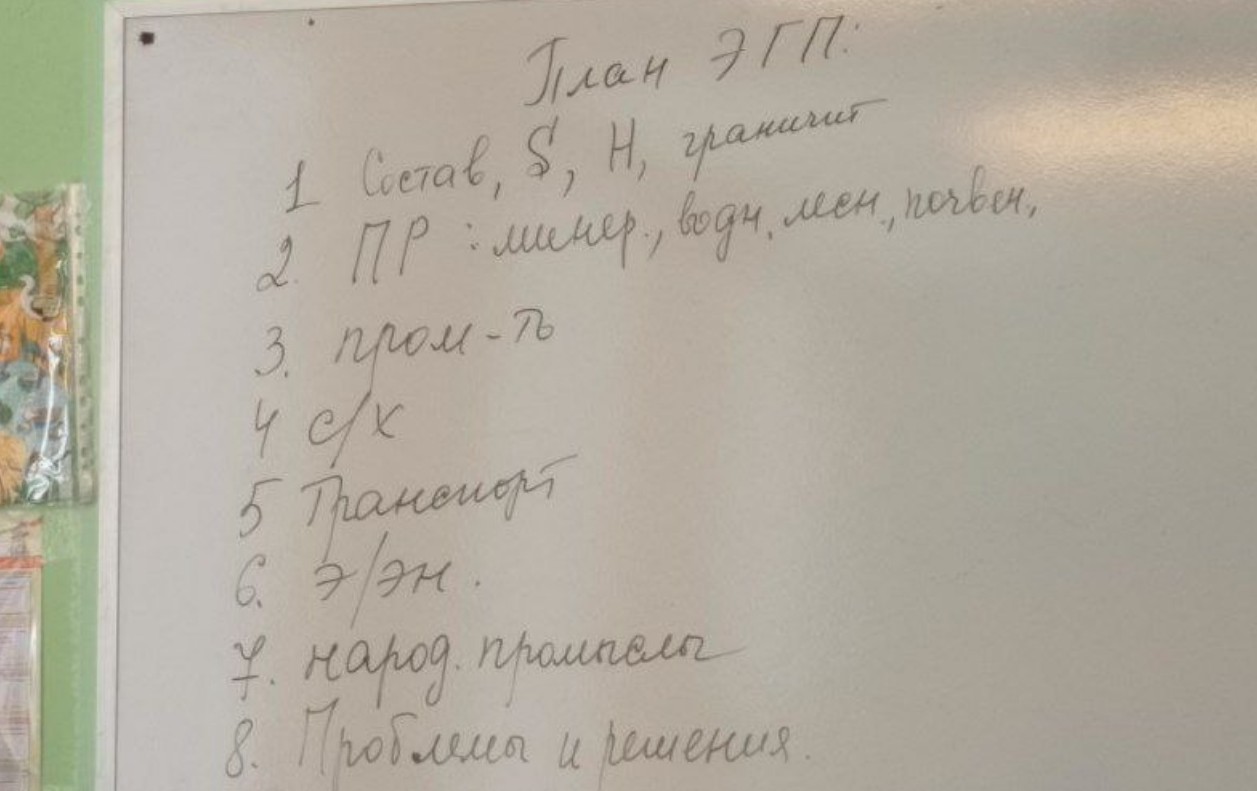 План ЭГП:
1 Состав, S, Н, граничит
2. ПР : минер., водн., лесн., почвен.,
3. пром-ть
4 с/х
5 Транспорт
6. э/эн.
7. народ. промыслы
8. Проблемы и решения.